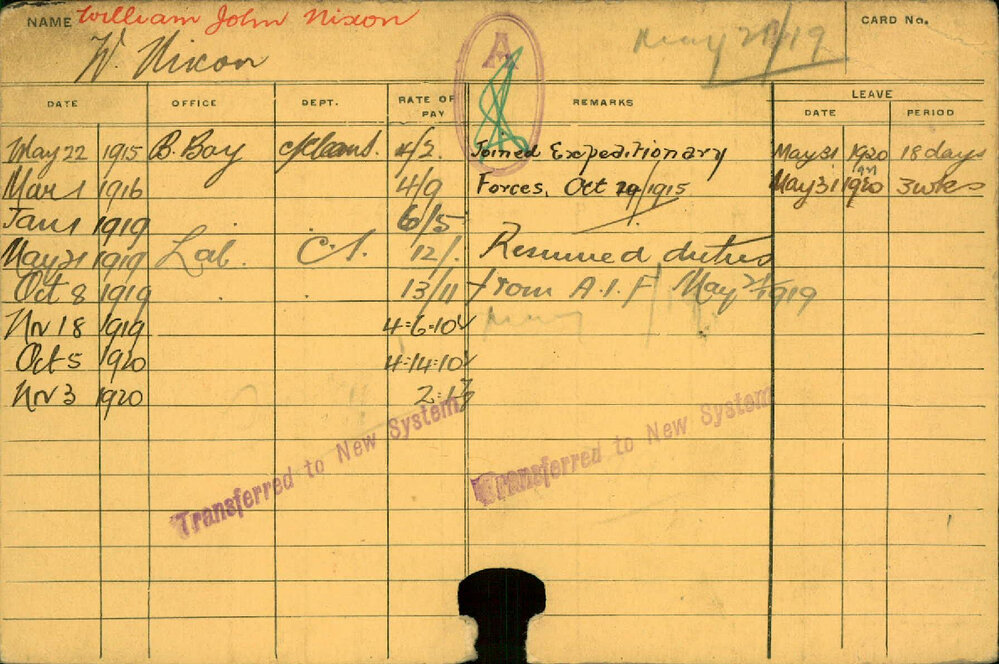 NAME William John Nixon
W. Nixon
A
May 21/19
CARD No.
DATE OFFICE DEPT. RATE OF PAY REMARKS LEAVE
DATE PERIOD
May 22 1915 B. Bay 4/2 Joined Expeditionary May 31 1920 18 days
Mar 1 1916 4/9 Forces, Oct 1915 May 31 1920 3 wks
Jan 1 1919 6/5
May 21 1919 Lab. C.S. 12/. Resumed duties
Oct 8 1919 13/11 from A.I.F May 21 1919
Nov 18 1919 4=6=10
May
Oct 5 1920 4=14=10
Nov 3 1920
Transferred to New System
Transferred to New System